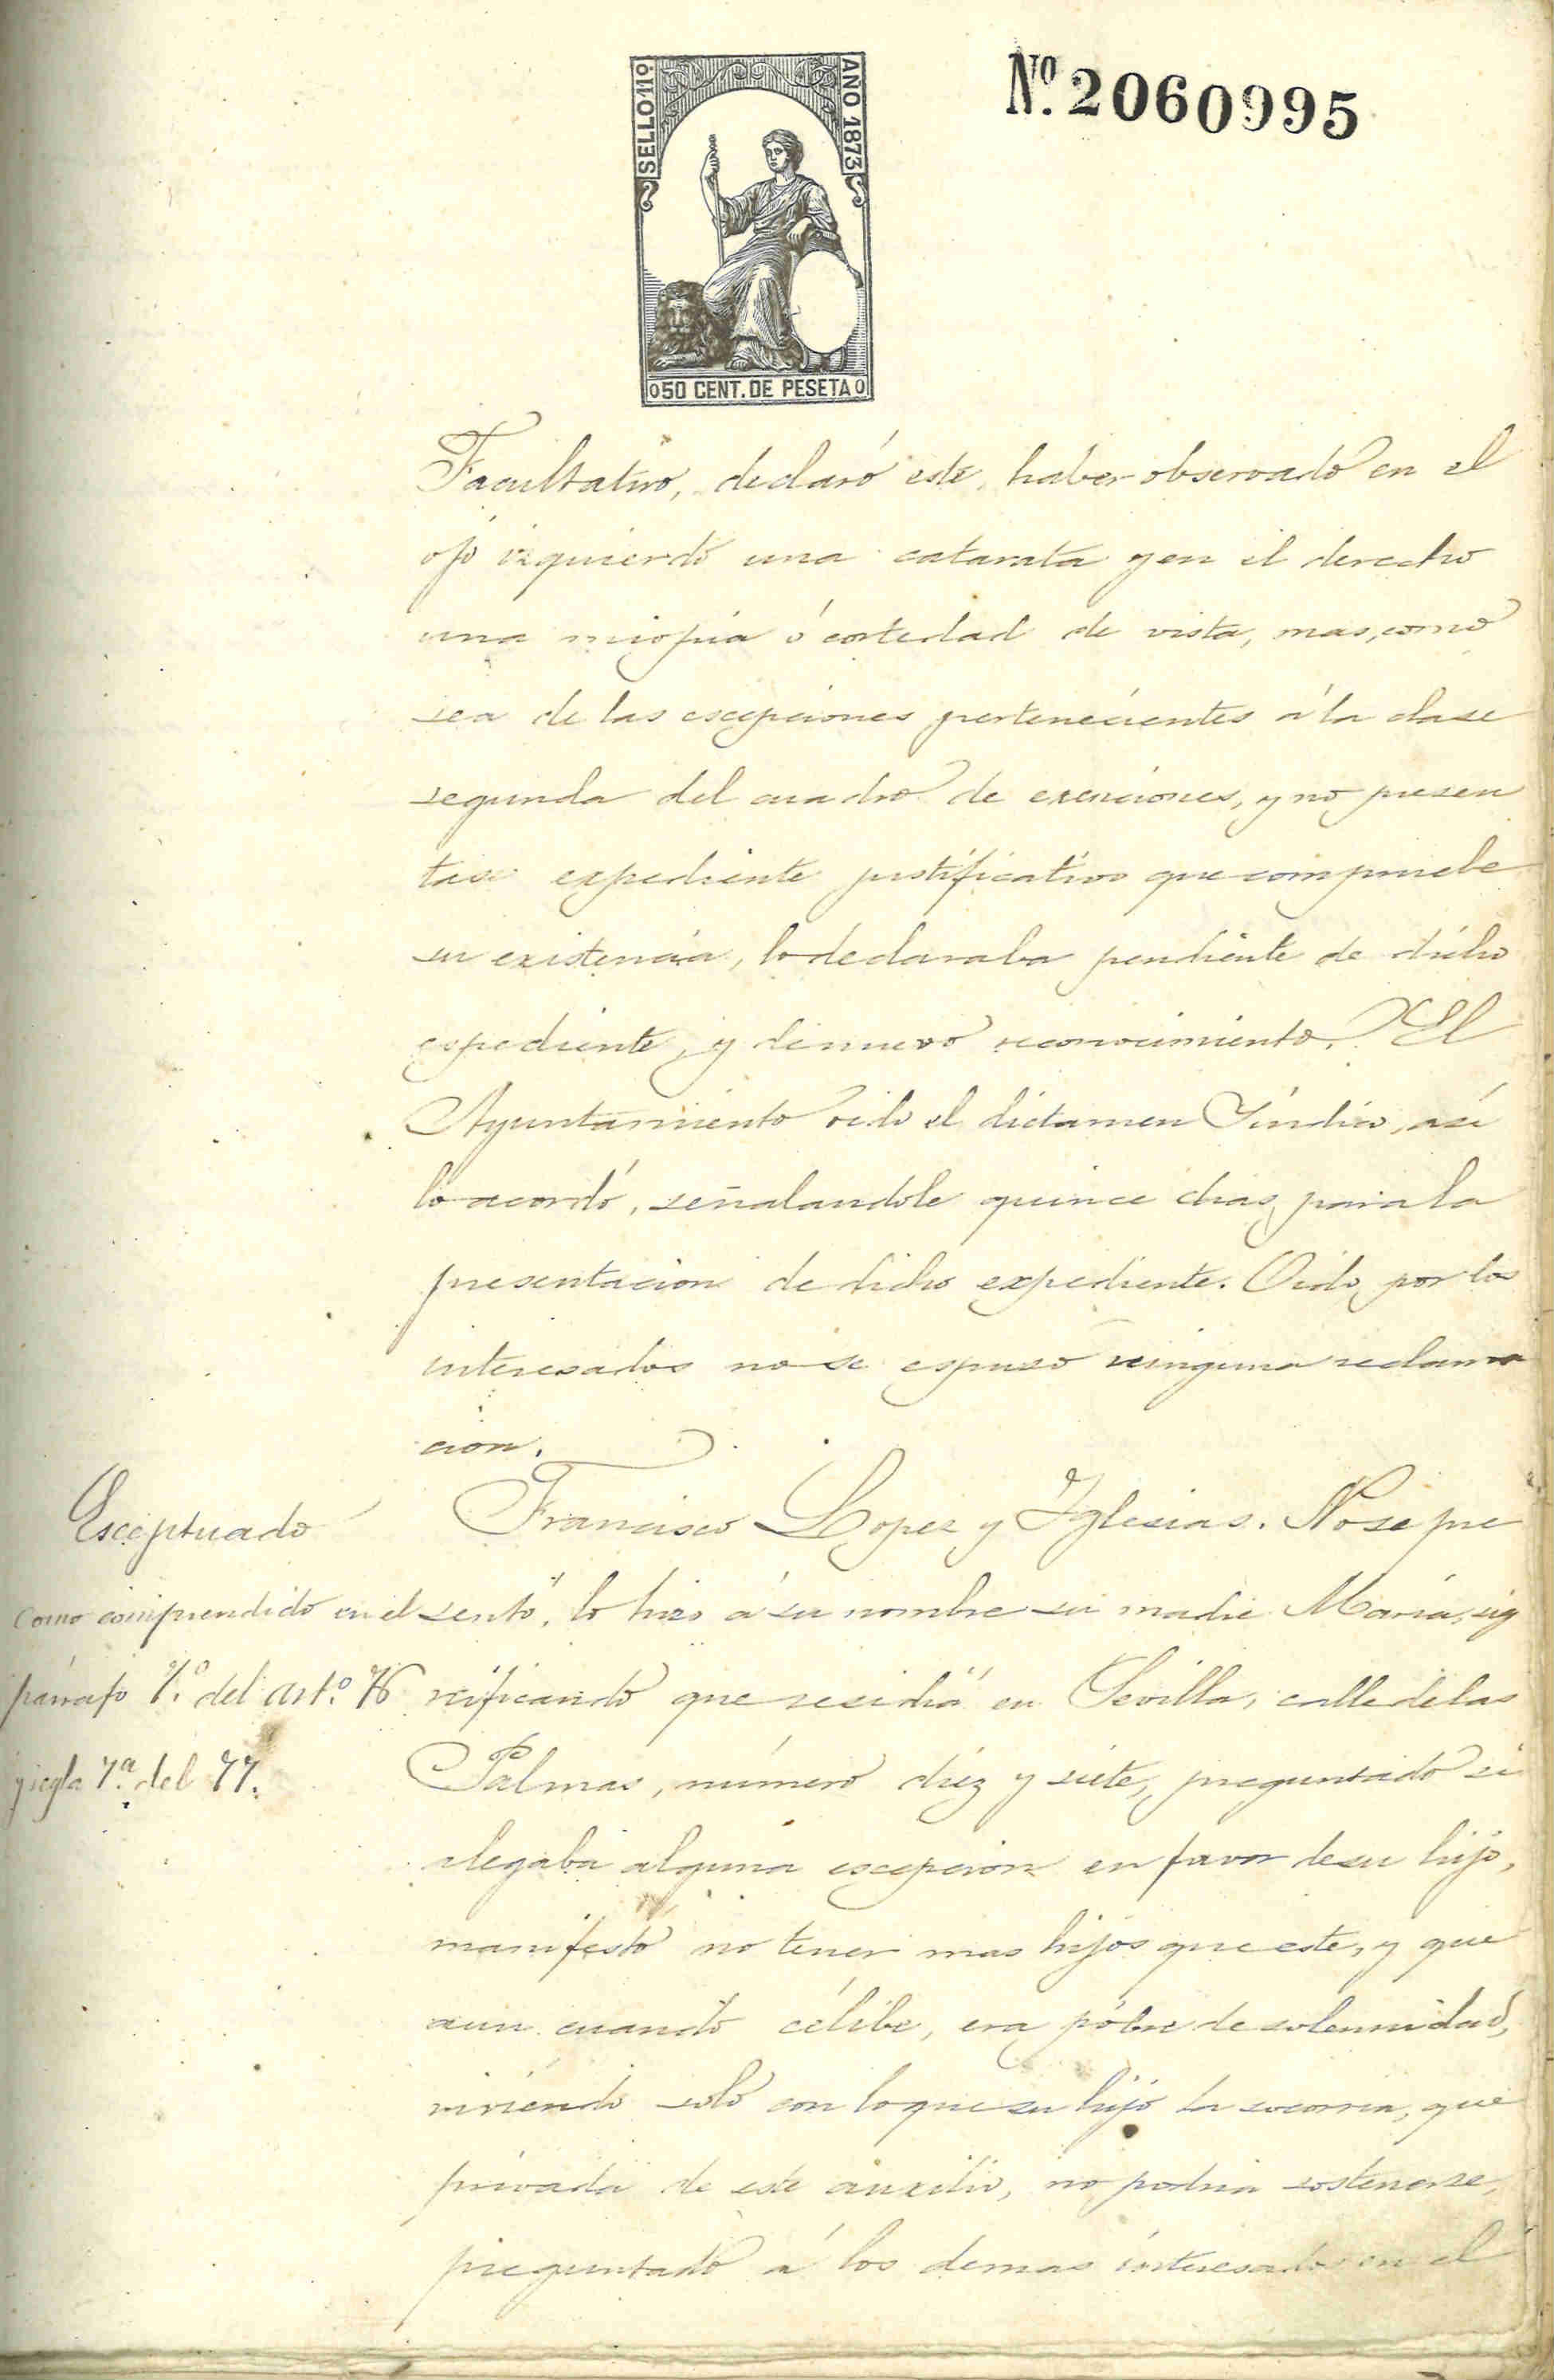 SELLO 11º
AÑO 1873
50 CENT. DE PESETA
Nº. 2060995
Facultativo, declaró este, haber observado en el
ojo izquierdo una catarata y en el derecho
una miopia ó cortedad de vista, mas, como
sea de las escepciones pertenecientes á la clase
segunda del cuadro de exenciones, y no presen
tase expediente justificativo que compruebe
su existencia, lo declaraba pendiente de dicho
espediente, y de nuevo reconocimiento. El
Ayuntamiento oido el dictamen Sindico, asi
lo acordó, señalandole quince dias, para la
presentacion de dicho expediente. Oido, por los
interesados no se espuso ninguna reclama
cion.
Esceptuado
como comprendido en el
párrafo 7.º del art.º 76
y regla 7.ª del 77.
Francisco Lopez y Yglesias. No se pre
sentó, lo hizo á su nombre su madre Maria, sig
nificando que residia en Sevilla, calle de las
Palmas, número diez y siete, preguntado si
alegaba alguna escepcion en favor de su hijo,
manifestó no tener mas hijos que este, y que
aun cuando célibe, era pobre de solemnidad,
viviendo solo con lo que su hijo la socorria, que
privada de este auxilio, no podria sostenerse,
preguntado á los demas interesados en el